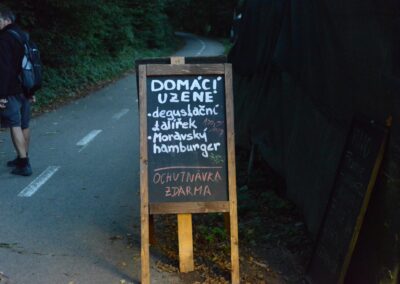 DOMÁCÍ
UZENÉ
• degustační
talířek
• Moravský
hamburger
OCHUTNÁVKA
ZDARMA